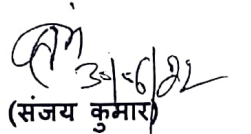 30/-6/22
(संजय कुमार)